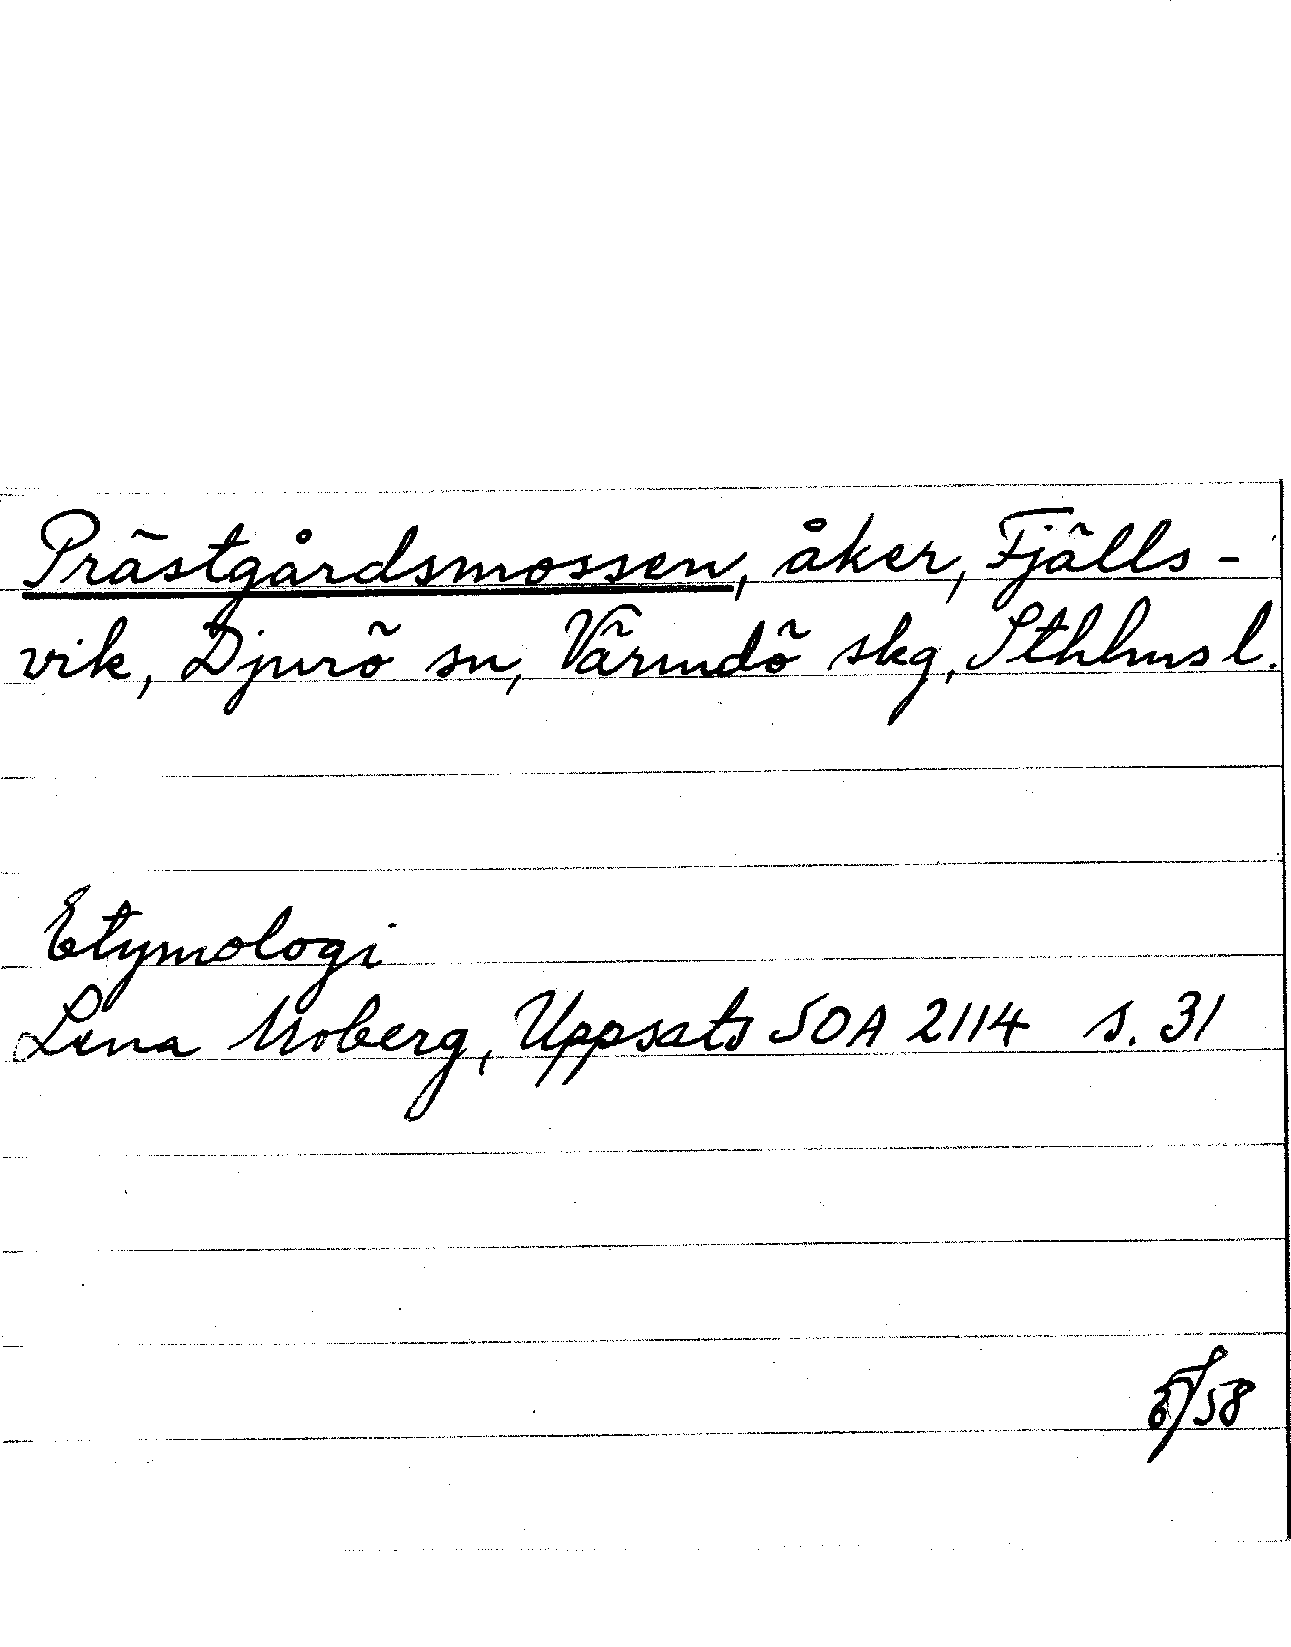 Prästgårdsmossen, åker, Fjälls-
vik, Djurö sn, Värmdö skg, Sthlms l.
Etymologi
Lena Moberg, Uppsats SOA 2114 s. 31